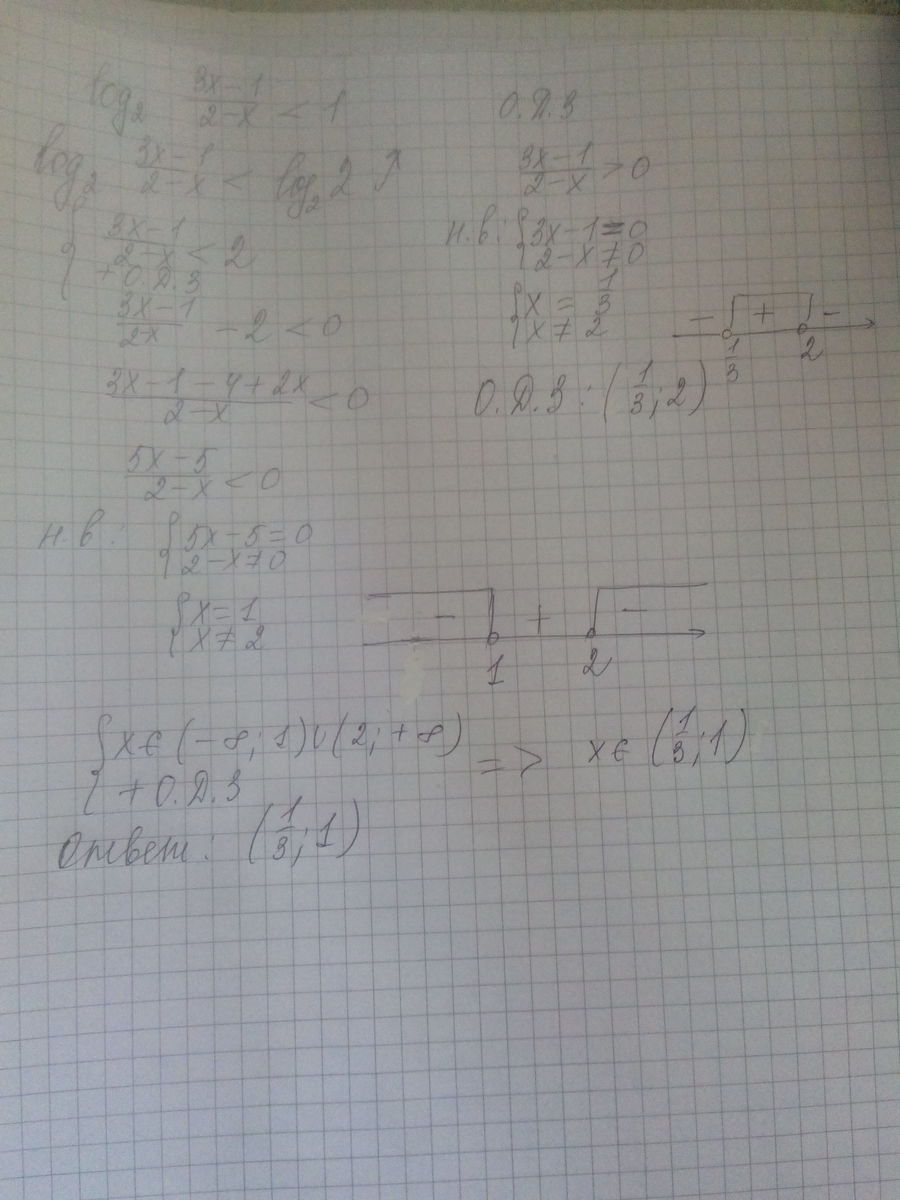 log₂ (3x-1)/(2-x) < 1
log₂ (3x-1)/(2-x) < log₂ 2 ↗
{ (3x-1)/(2-x) < 2
+ О.Д.З
(3x-1)/(2x) - 2 < 0
(3x-1-4+2x)/(2-x) < 0
(5x-5)/(2-x) < 0
н.в: { 5x-5=0
2-x≠0
{ x=1
x≠2
- + -
1 2
О.Д.З
(3x-1)/(2-x) > 0
н.в: { 3x-1=0
2-x≠0
{ x = 1/3
x ≠ 2
- + -
1/3 2
О.Д.З: (1/3; 2)
{ x∈(-∞; 1)∪(2; +∞)
+ О.Д.З
=> x∈(1/3; 1)
Ответ: (1/3; 1)